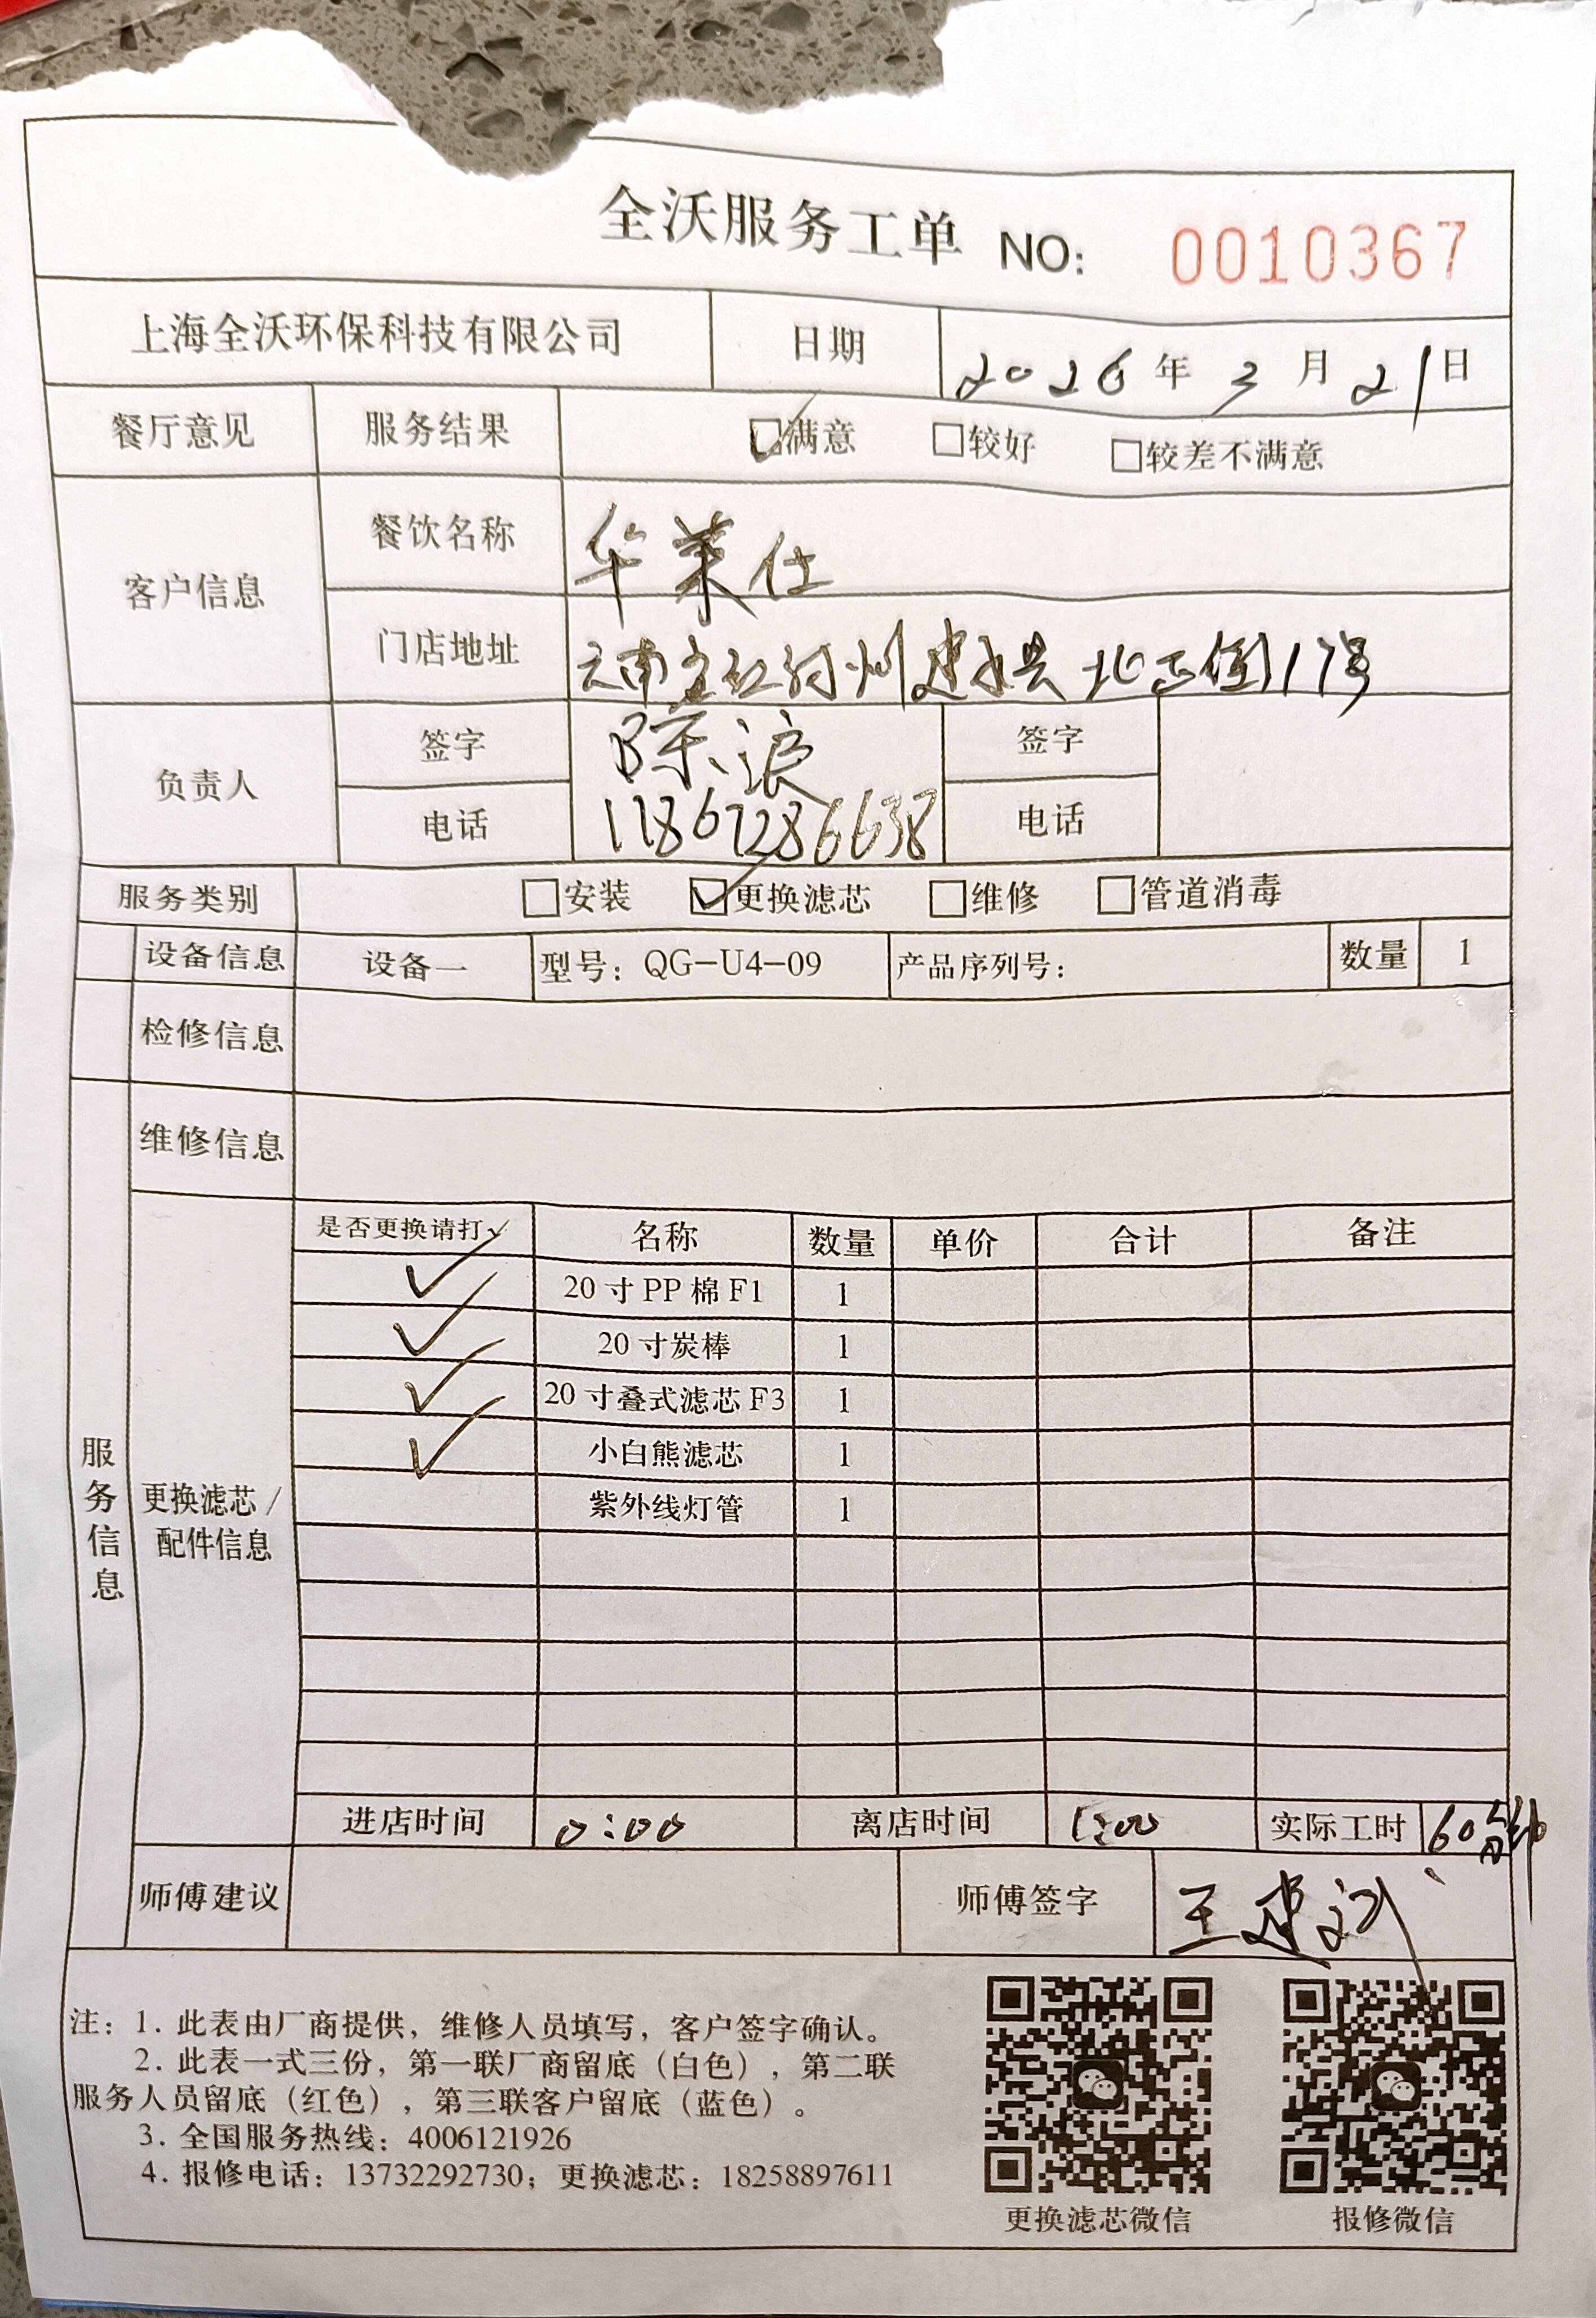 全沃服务工单 NO: 0010367
上海全沃环保科技有限公司 日期 2026年3月21日
餐厅意见 服务结果 ☑满意 □较好 □较差不满意
客户信息 餐饮名称 华莱仕
门店地址 云南省红河州建水县北正街17号
负责人 签字 陈浪 签字
电话 电话
服务类别 □安装 ☑更换滤芯 □维修 □管道消毒
设备信息 设备一 型号：QG-U4-09 产品序列号： 数量 1
检修信息
维修信息
服务信息
更换滤芯/配件信息
是否更换请打✓ 名称 数量 单价 合计 备注
✓ 20寸PP棉F1 1
✓ 20寸炭棒 1
✓ 20寸叠式滤芯F3 1
✓ 小白熊滤芯 1
紫外线灯管 1
进店时间 0:00 离店时间 1:00 实际工时 60分钟
师傅建议 师傅签字 王建斌
注：1. 此表由厂商提供，维修人员填写，客户签字确认。
2. 此表一式三份，第一联厂商留底（白色），第二联
服务人员留底（红色），第三联客户留底（蓝色）。
3. 全国服务热线：4006121926
4. 报修电话：13732292730；更换滤芯：18258897611
更换滤芯微信 报修微信